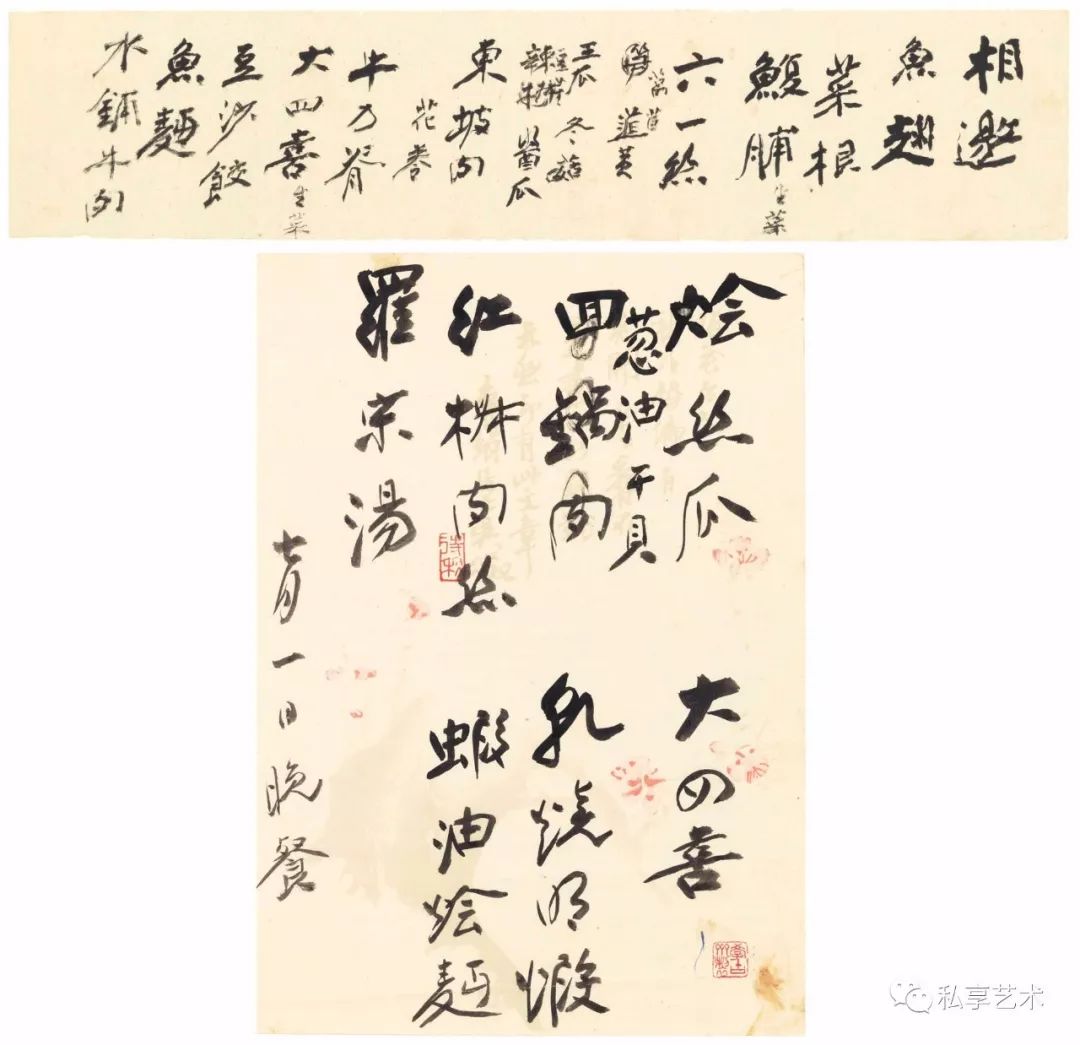 相邀
魚翅
菜根
鰒脯 生菜
六一絲
萵苣
韮黃
王瓜 冬菇
醬瓜
東坡肉
花卷
牛方脊
大四喜 生菜
豆沙餃
魚麵
水鋪牛肉
燴絲瓜
葱油干貝
回鍋肉
紅椒肉絲
羅宋湯
大四喜
乳燒明蝦
蝦油燴麵
七月一日晚餐
私享艺术